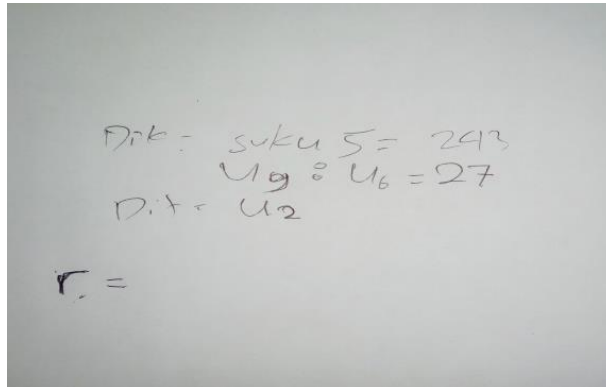 Dik = suku 5 = 243
U9 : U6 = 27
Dit = U2
r. =